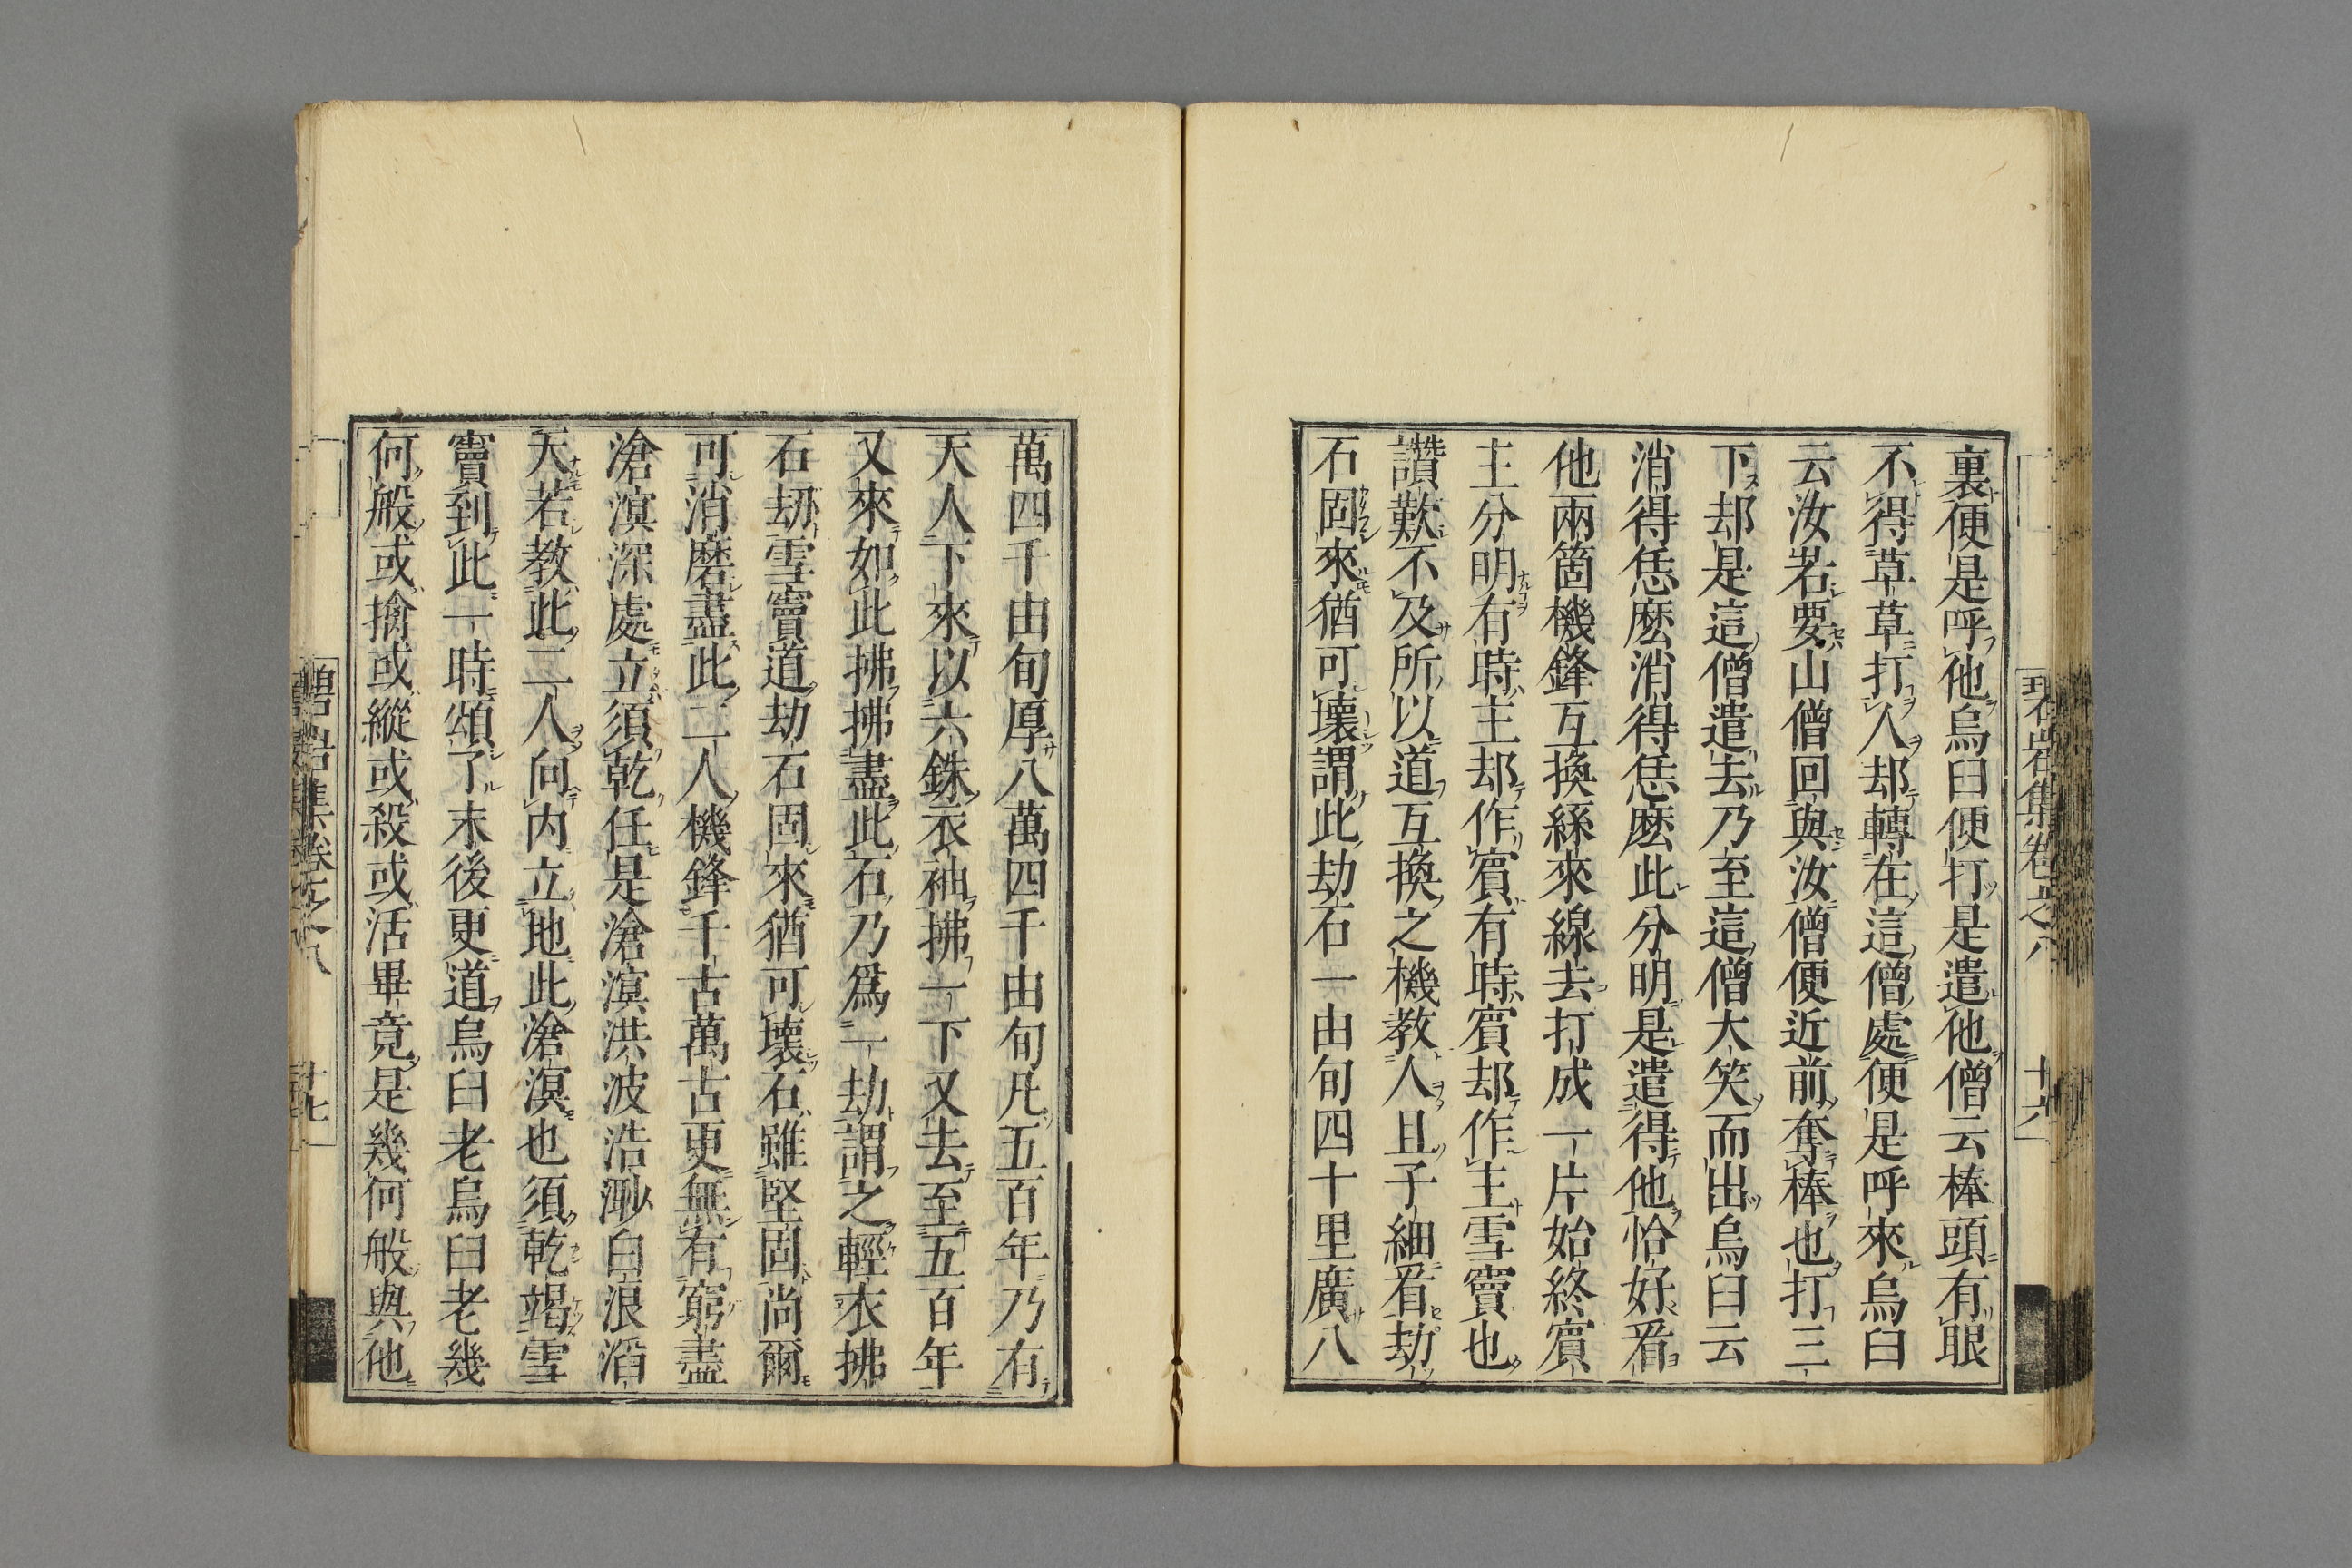 裏便是呼他烏臼便打是遣他僧云棒頭有眼
不得草草打人却轉在這僧處便是呼來烏臼
云汝若要山僧回與汝僧便近前奪棒也打三
下却是這僧遣去乃至這僧大笑而出烏臼云
消得恁麽消得恁麽此分明是遣得他恰好看
他兩箇機鋒互換絲來線去打成一片始終賓
主分明有時主却作賓有時賓却作主雪竇也
讚歎不及所以道互換之機教人且子細看劫
石固來猶可壞謂此劫石一由旬四十里廣八
碧岩集卷之八 十六
萬四千由旬厚八萬四千由旬凡五百年乃有
天人下來以六銖衣袖拂一下又去至五百年
又來如此拂拂盡此石乃爲一劫謂之輕衣拂
石劫雪竇道劫石固來猶可壞石雖堅固尚爾
可消磨盡此二人機鋒千古萬古更無有窮盡
滄溟深處立須乾任是滄溟洪波浩渺白浪滔
天若教此二人向内立地此滄溟也須乾竭雪
竇到此一時頌了末後更道烏臼老烏臼老幾
何般或擒或縱或殺或活畢竟是幾何般與他
碧岩集卷之八 十七